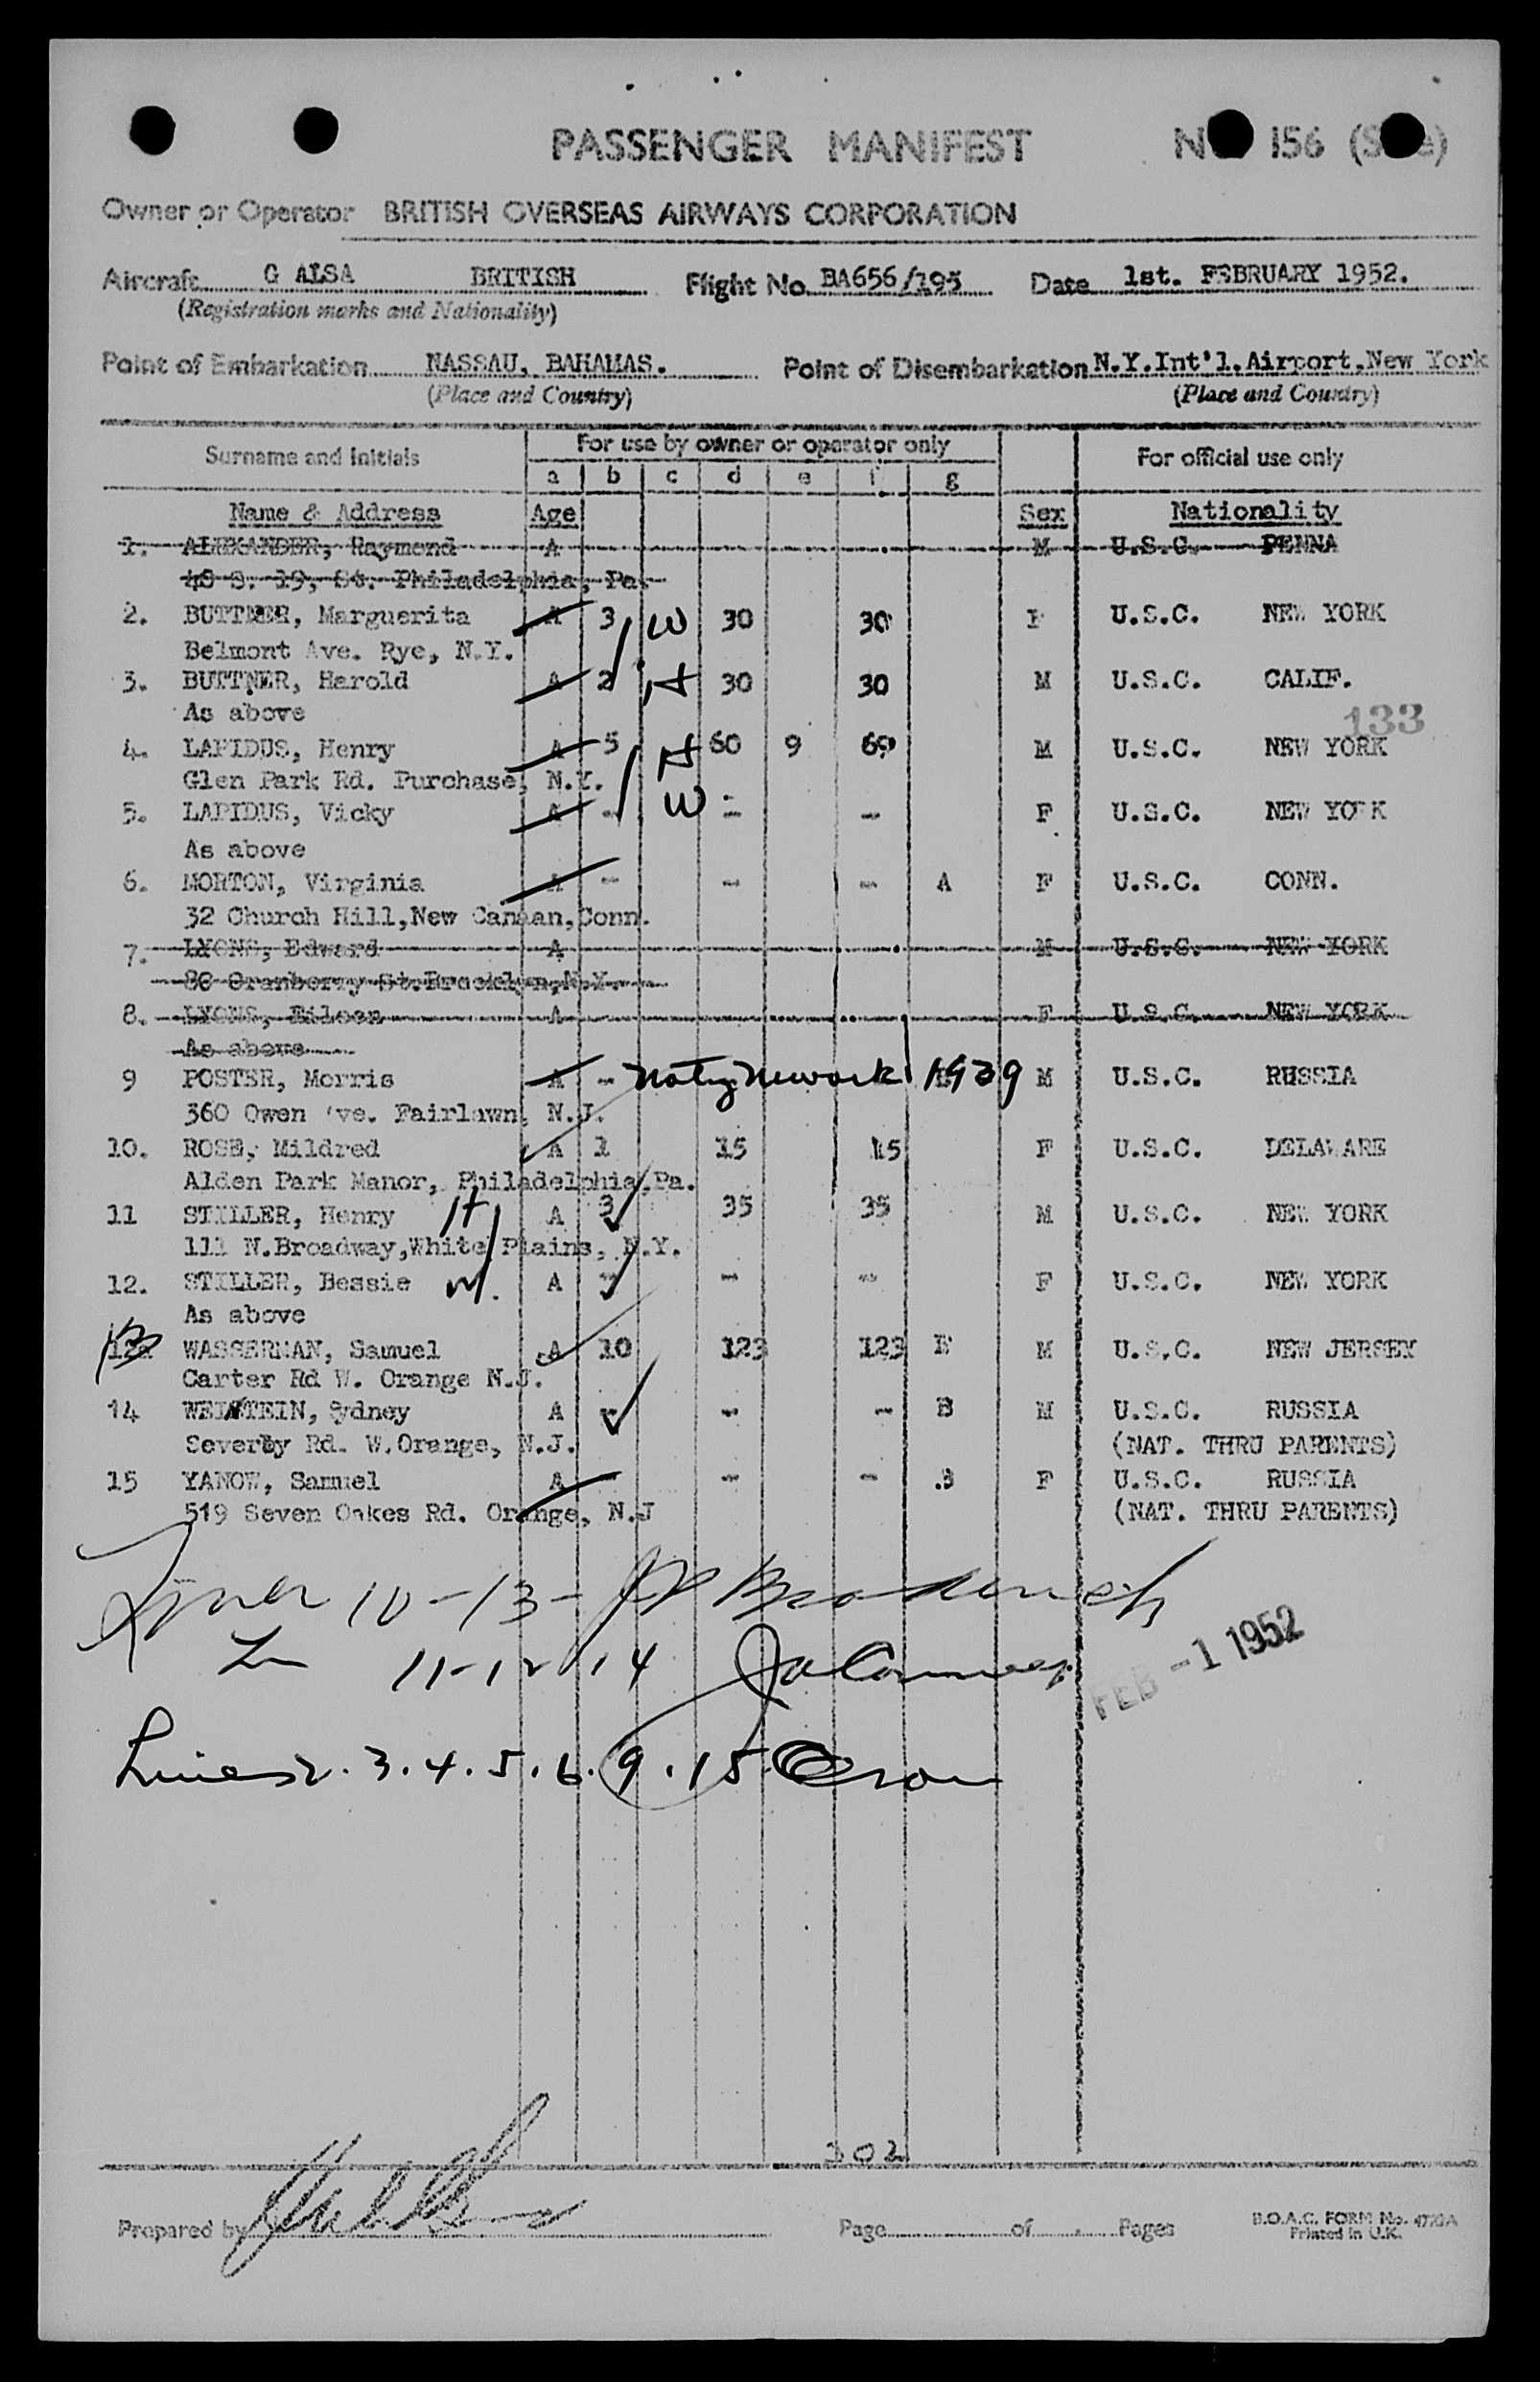 PASSENGER MANIFEST
156
Owner or Operator BRITISH OVERSEAS AIRWAYS CORPORATION
Aircraft G ALSA BRITISH Flight No. BA656/195 Date 1st. FEBRUARY 1952.
(Registration marks and Nationality)
Point of Embarkation NASSAU, BAHAMAS. Point of Disembarkation N.Y.Int'l.Airport.New York
(Place and Country) (Place and Country)
Surname and Initials For use by owner or operator only For official use only
a b c d e f g
Name & Address Age Sex Nationality
1. ALEXANDER, Raymond A M U.S.C. PENNA
40 S. 19, St. Philadelphia, Pa.
2. BUTTNER, Marguerita A 3 W 30 30 F U.S.C. NEW YORK
Belmont Ave. Rye, N.Y.
3. BUTTNER, Harold A 2 H 30 30 M U.S.C. CALIF.
As above
133
4. LAPIDUS, Henry A 5 H 60 9 69 M U.S.C. NEW YORK
Glen Park Rd. Purchase, N.Y.
5. LAPIDUS, Vicky A - W - - F U.S.C. NEW YORK
As above
6. MORTON, Virginia A - - - A F U.S.C. CONN.
32 Church Hill,New Canaan,Conn.
7. LYONS, Edward A M U.S.C. NEW YORK
80 Cranberry St.Brooklyn,N.Y.
8. LYONS, Eileen A F U.S.C. NEW YORK
As above
9 POSTER, Morris A - Natz Newark 1939 M U.S.C. RUSSIA
360 Owen 've. Fairlawn, N.J.
10. ROSE, Mildred A 1 15 15 F U.S.C. DELAWARE
Alden Park Manor, Philadelphia,Pa.
11 STILLER, Henry H A 3 35 35 M U.S.C. NEW YORK
111 N.Broadway,White Plains, N.Y.
12. STILLER, Bessie W. A - - - F U.S.C. NEW YORK
As above
13 WASSERMAN, Samuel A 10 123 123 E M U.S.C. NEW JERSEY
Carter Rd W. Orange N.J.
14 WEINTEIN, Sydney A - - - B M U.S.C. RUSSIA
Severby Rd. W.Orange, N.J. (NAT. THRU PARENTS)
15 YANOW, Samuel A - - - B F U.S.C. RUSSIA
519 Seven Oakes Rd. Orange, N.J (NAT. THRU PARENTS)
10-13-
11-12 14
FEB -1 1952
Lines 2.3.4.5.6.9.15
302
Prepared by Page of Pages B.O.A.C. FORM No.
Printed in U.K.